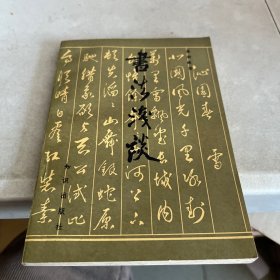 書法淺谈
沁园春 雪
北国風光千里冰封
万里雪飘望长城内
外惟余莽莽大河上下
顿失滔滔山舞银蛇原
驰腊象欲与天公试比
高须晴日看红装素
知识出版社